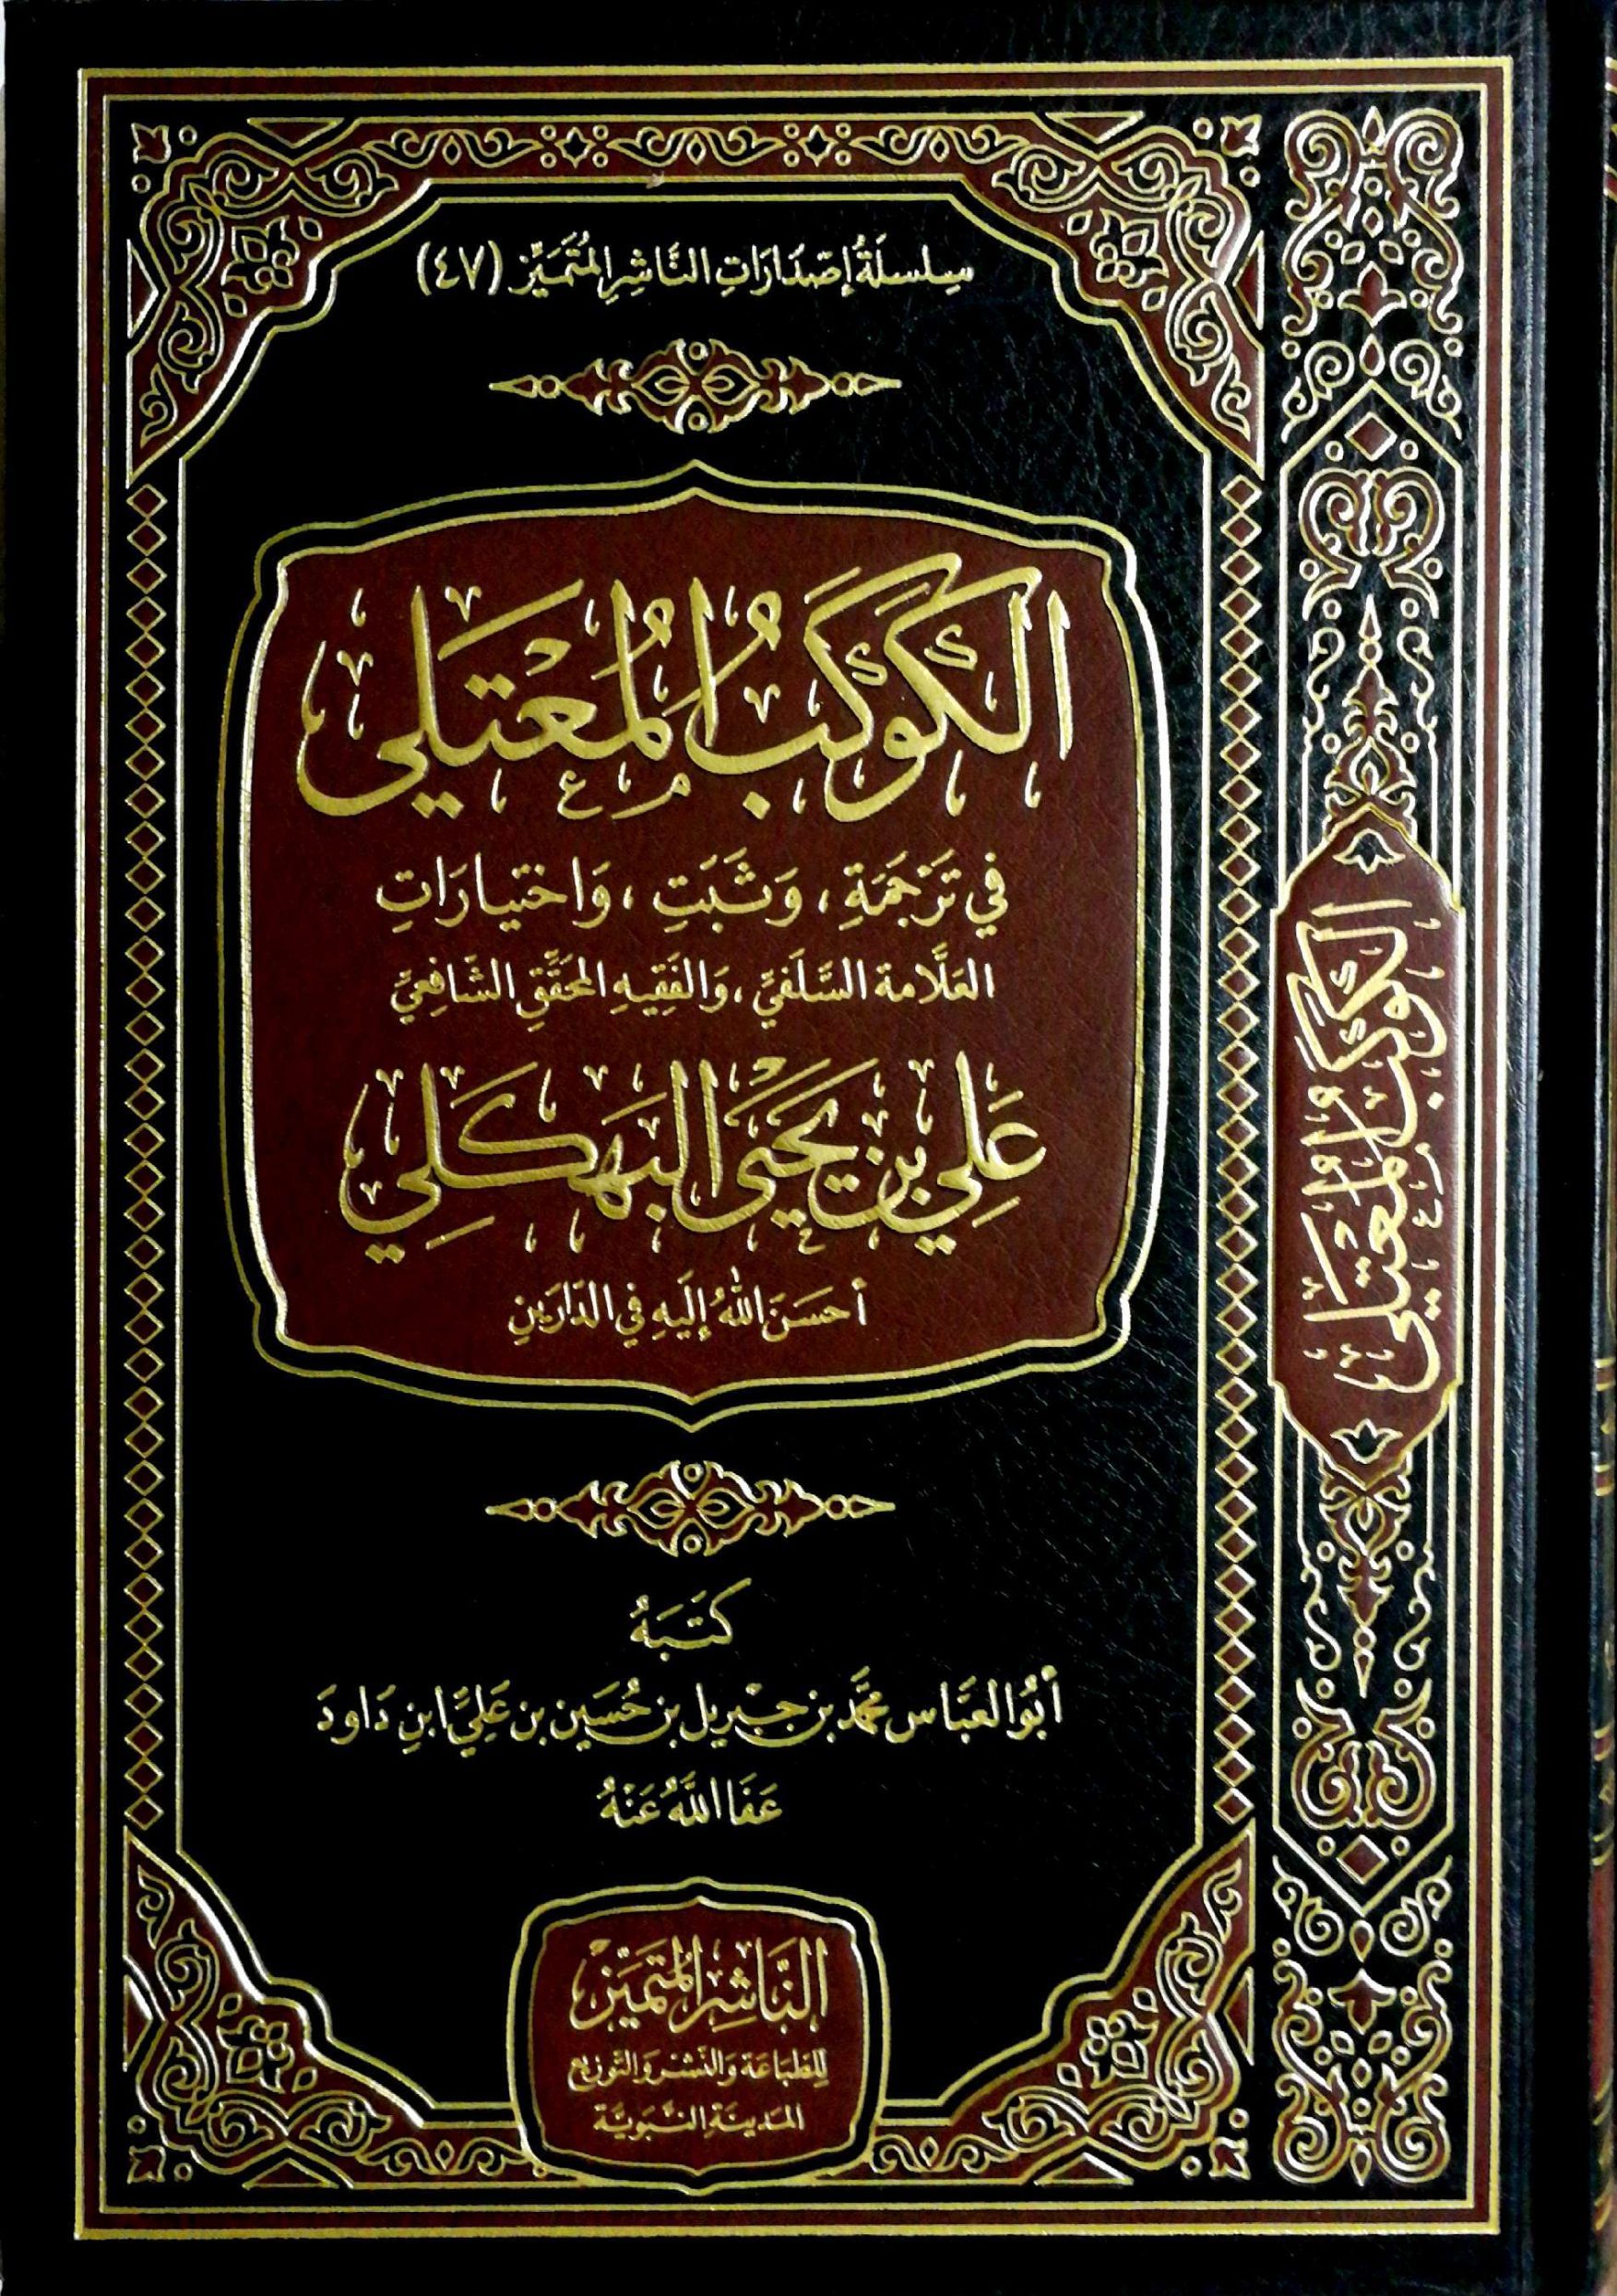 سِلسلَةُ إصْدَارَاتِ النَّاشِرِ المُتَمَيِّز (٤٧)
الكَوْكَبُ المُعْتَلِي
في تَرْجَمَةِ، وَثَبَتِ، وَاختيارَاتِ
العَلَّامة السَّلَفيِّ، وَالفَقِيهِ المُحَقِّقِ الشَّافِعِيِّ
عَلِي بن يَحْيَى البَهْكَلِي
أحسَنَ اللهُ إلَيهِ في الدَّارَينِ
كَتَبَهُ
أبُو العَبَّاس محمَّد بن جبْريل بن حُسَين بن عَلِيٍّ ابنِ دَاودَ
عَفَا اللَّهُ عَنْهُ
النَّاشِر المُتَمَيِّزْ
لِلطِّبَاعَة وَالنَّشْر وَالتَّوزِيع
المَدينَة النَّبَويَّة
الكَوْكَبُ المُعْتَلِي